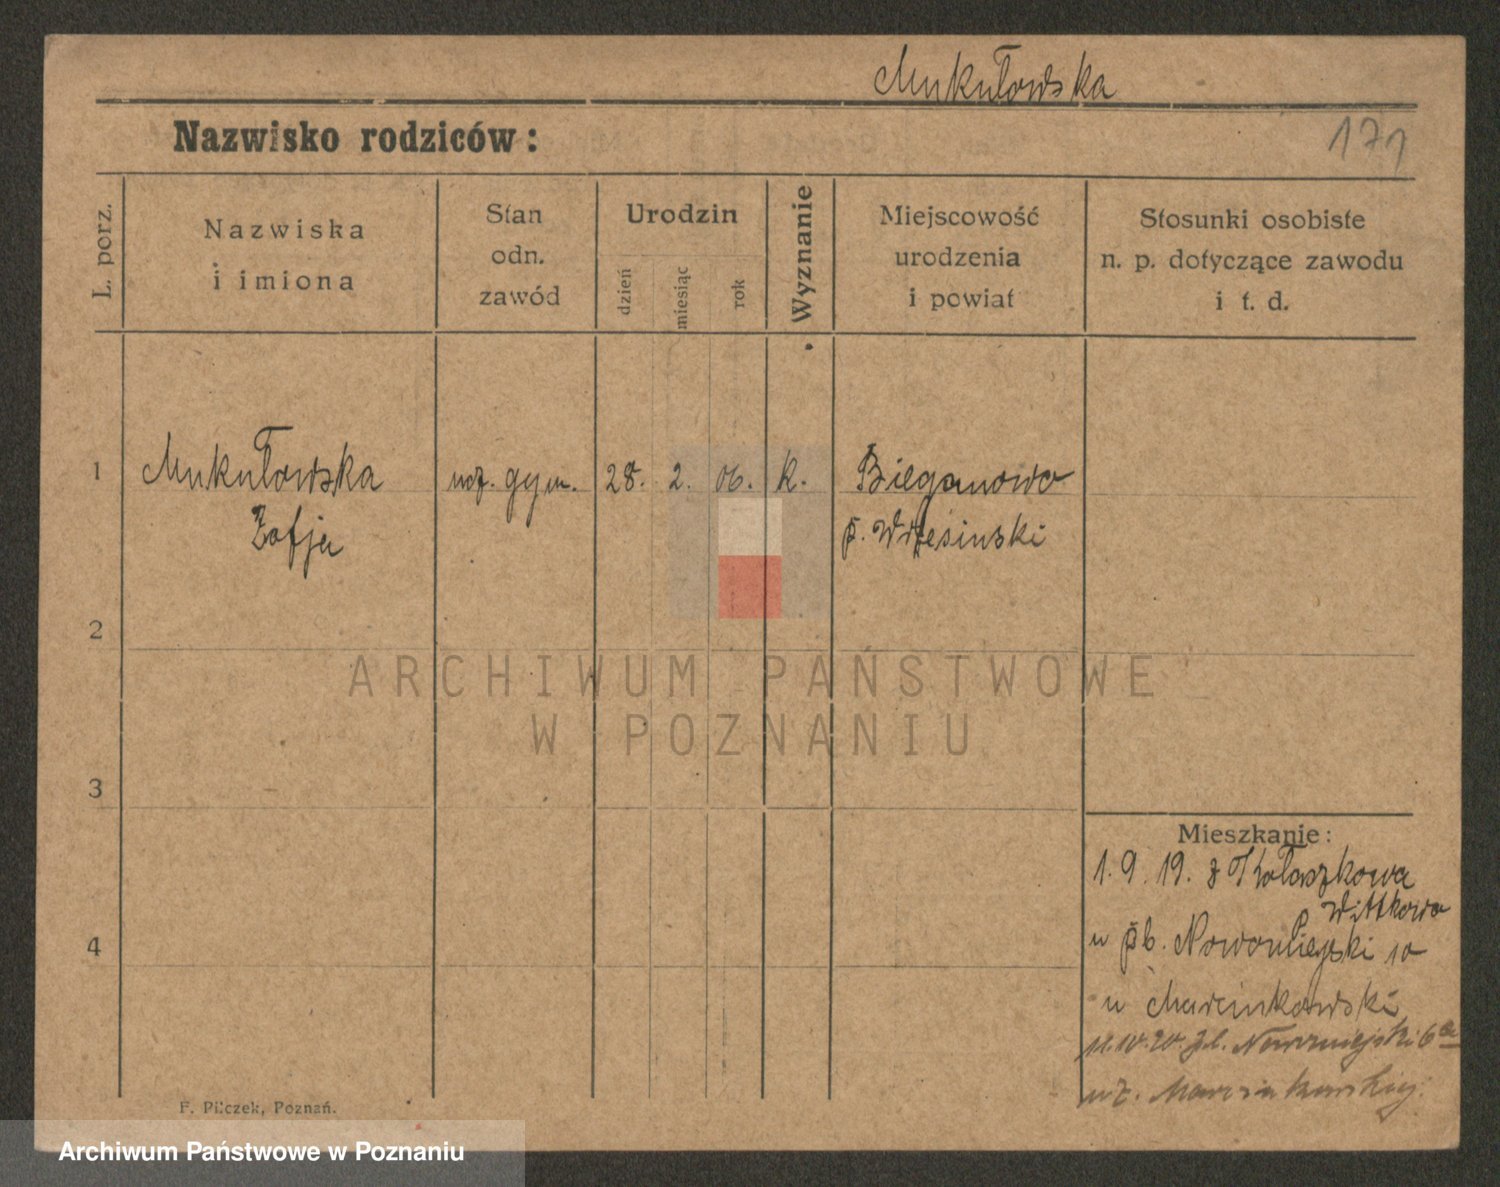 Mukułowska
Nazwisko rodziców:
171
L. porz.
Nazwiska
i imiona
Stan
odn.
zawód
Urodzin
dzień
miesiąc
rok
Wyznanie
Miejscowość
urodzenia
i powiat
Stosunki osobiste
n. p. dotyczące zawodu
i t. d.
1
Mukułowska
Zofja
ucz. gym.
28. 2. 06.
k.
Bieganowo
p. Wrzesinski
2
3
4
Mieszkanie:
1. 9. 19. z Kołaszkowa
Wittkowo
u pl. Nowomiejski 10
u Marcinkowski
11.10.20. pl. Nowomiejski 6a
u Marcinkowskiej
F. Pilczek, Poznań.
ARCHIWUM PAŃSTWOWE
W POZNANIU
Archiwum Państwowe w Poznaniu